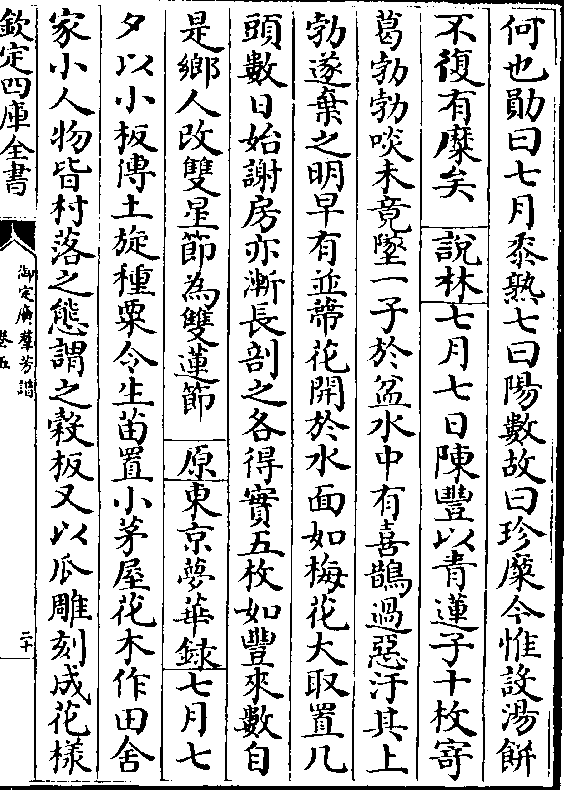 何也勛曰七月黍熟七曰陽數故曰珍糜今惟設湯餅
不復有糜矣 說林七月七日陳豐以青蓮子十枚寄
葛勃勃啖未竟墜一子於盆水中有喜鵲過惡汙其上
勃遂棄之明早有並蔕花開於水面如梅花大取置几
頭數日始謝房亦漸長剖之各得實五枚如豐來數自
是鄉人改雙星節為雙蓮節 原東京夢華録七月七
夕以小板傅土旋種粟令生苗置小茅屋花木作田舍
家小人物皆村落之態謂之榖板又以瓜雕刻成花樣
欽定四庫全書
御定廣羣芳譜
卷五
二十